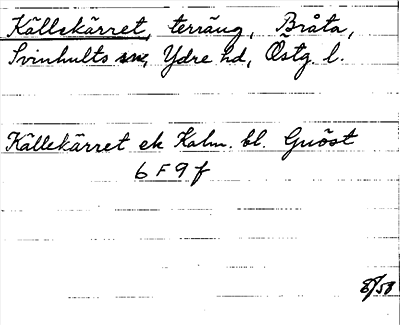 Källekärret, terräng, Bråta,
Svinhults sn, Ydre hd, Östg. l.
Källekärret ek Kalm. bl. Gnöst
6 F 9 f